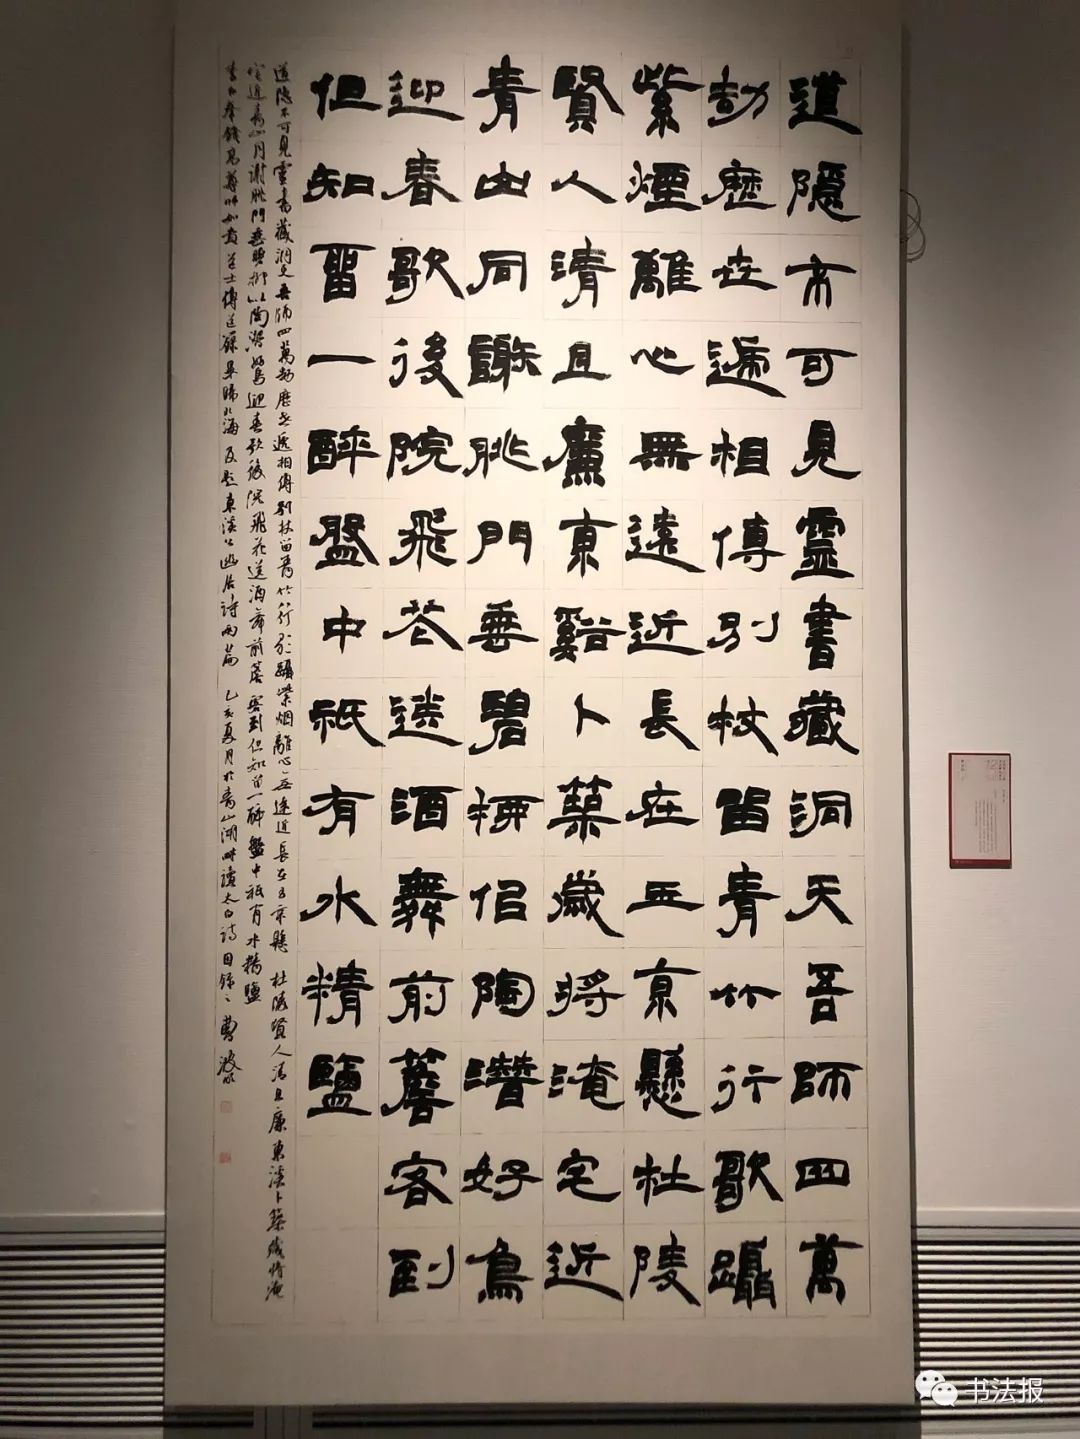 道隱不可見靈書藏洞天吾師四萬
劫歷世遞相傳別杖留青竹行歌躡
紫煙離心無遠近長在玉京懸杜陵
賢人清且廉東谿卜築歲將淹宅近
青山同謝脁門垂碧柳佀陶潛好鳥
迎春歌後院飛花送酒舞前簷客到
但知留一醉盤中祇有水精鹽
道隱不可見靈書藏洞天吾師四萬劫歷世遞相傳別杖留青竹行歌躡紫烟離心無遠近長在玉京懸 杜陵賢人清且廉東溪卜築歲將淹
宅近青山同謝脁門垂碧柳似陶潛好鳥迎春歌後院飛花送酒舞前簷客到但知留一醉盤中祇有水精鹽
李白奉餞高尊師如貴道士傳道籙畢歸北海及題東溪公幽居詩兩篇 己亥夏月於青山湖畔讀太白詩因錄之 曹
书法报